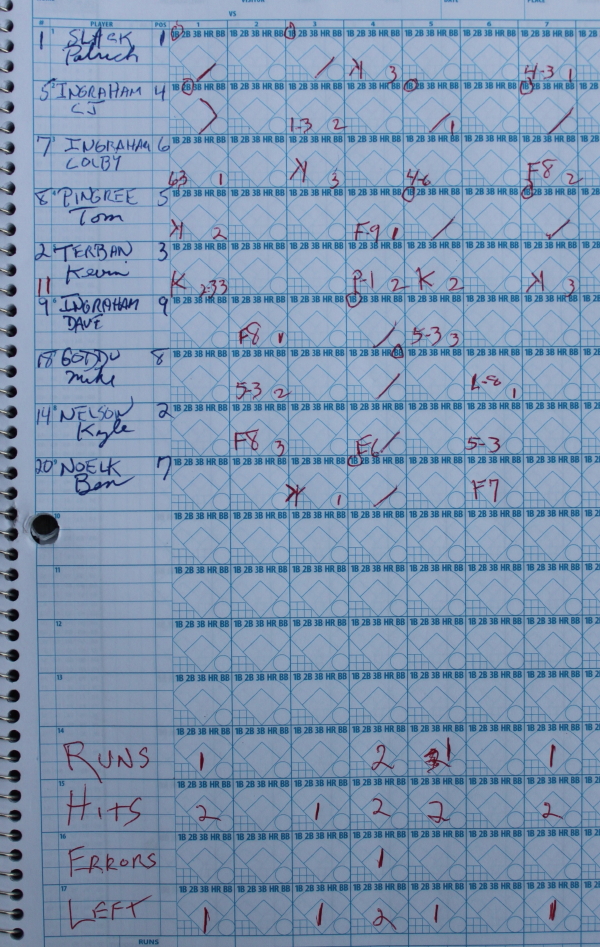 VISITOR
VS
DATE
PLACE
# PLAYER POS 1 2 3 4 5 6 7
1 SLACK 1
Patrick
K 3 4-3 1
5 INGRAHAM 4
CJ
1-3 2 1
7 INGRAHAM 6
COLBY
63 1 K 3 4-6 F8 2
8 PINGREE 5
Tom
K 2 F-9 1
2 TERBAN 3
11 Kevin
K 2-33 P-1 2 K 2 K 3
9 INGRAHAM 9
DAVE
F8 1 5-3 3
18 GODDU 8
Mike
5-3 2 L-8 1
14 NELSON 2
Kyle
F8 3 E6 5-3
20 NOELK 7
Ben
K 1 F7
10
11
12
13
14
RUNS 1 2 1 1
15
HITS 2 1 2 2 2
16
ERRORS 1
17
LEFT 1 1 2 1 1
RUNS
1B 2B 3B HR BB